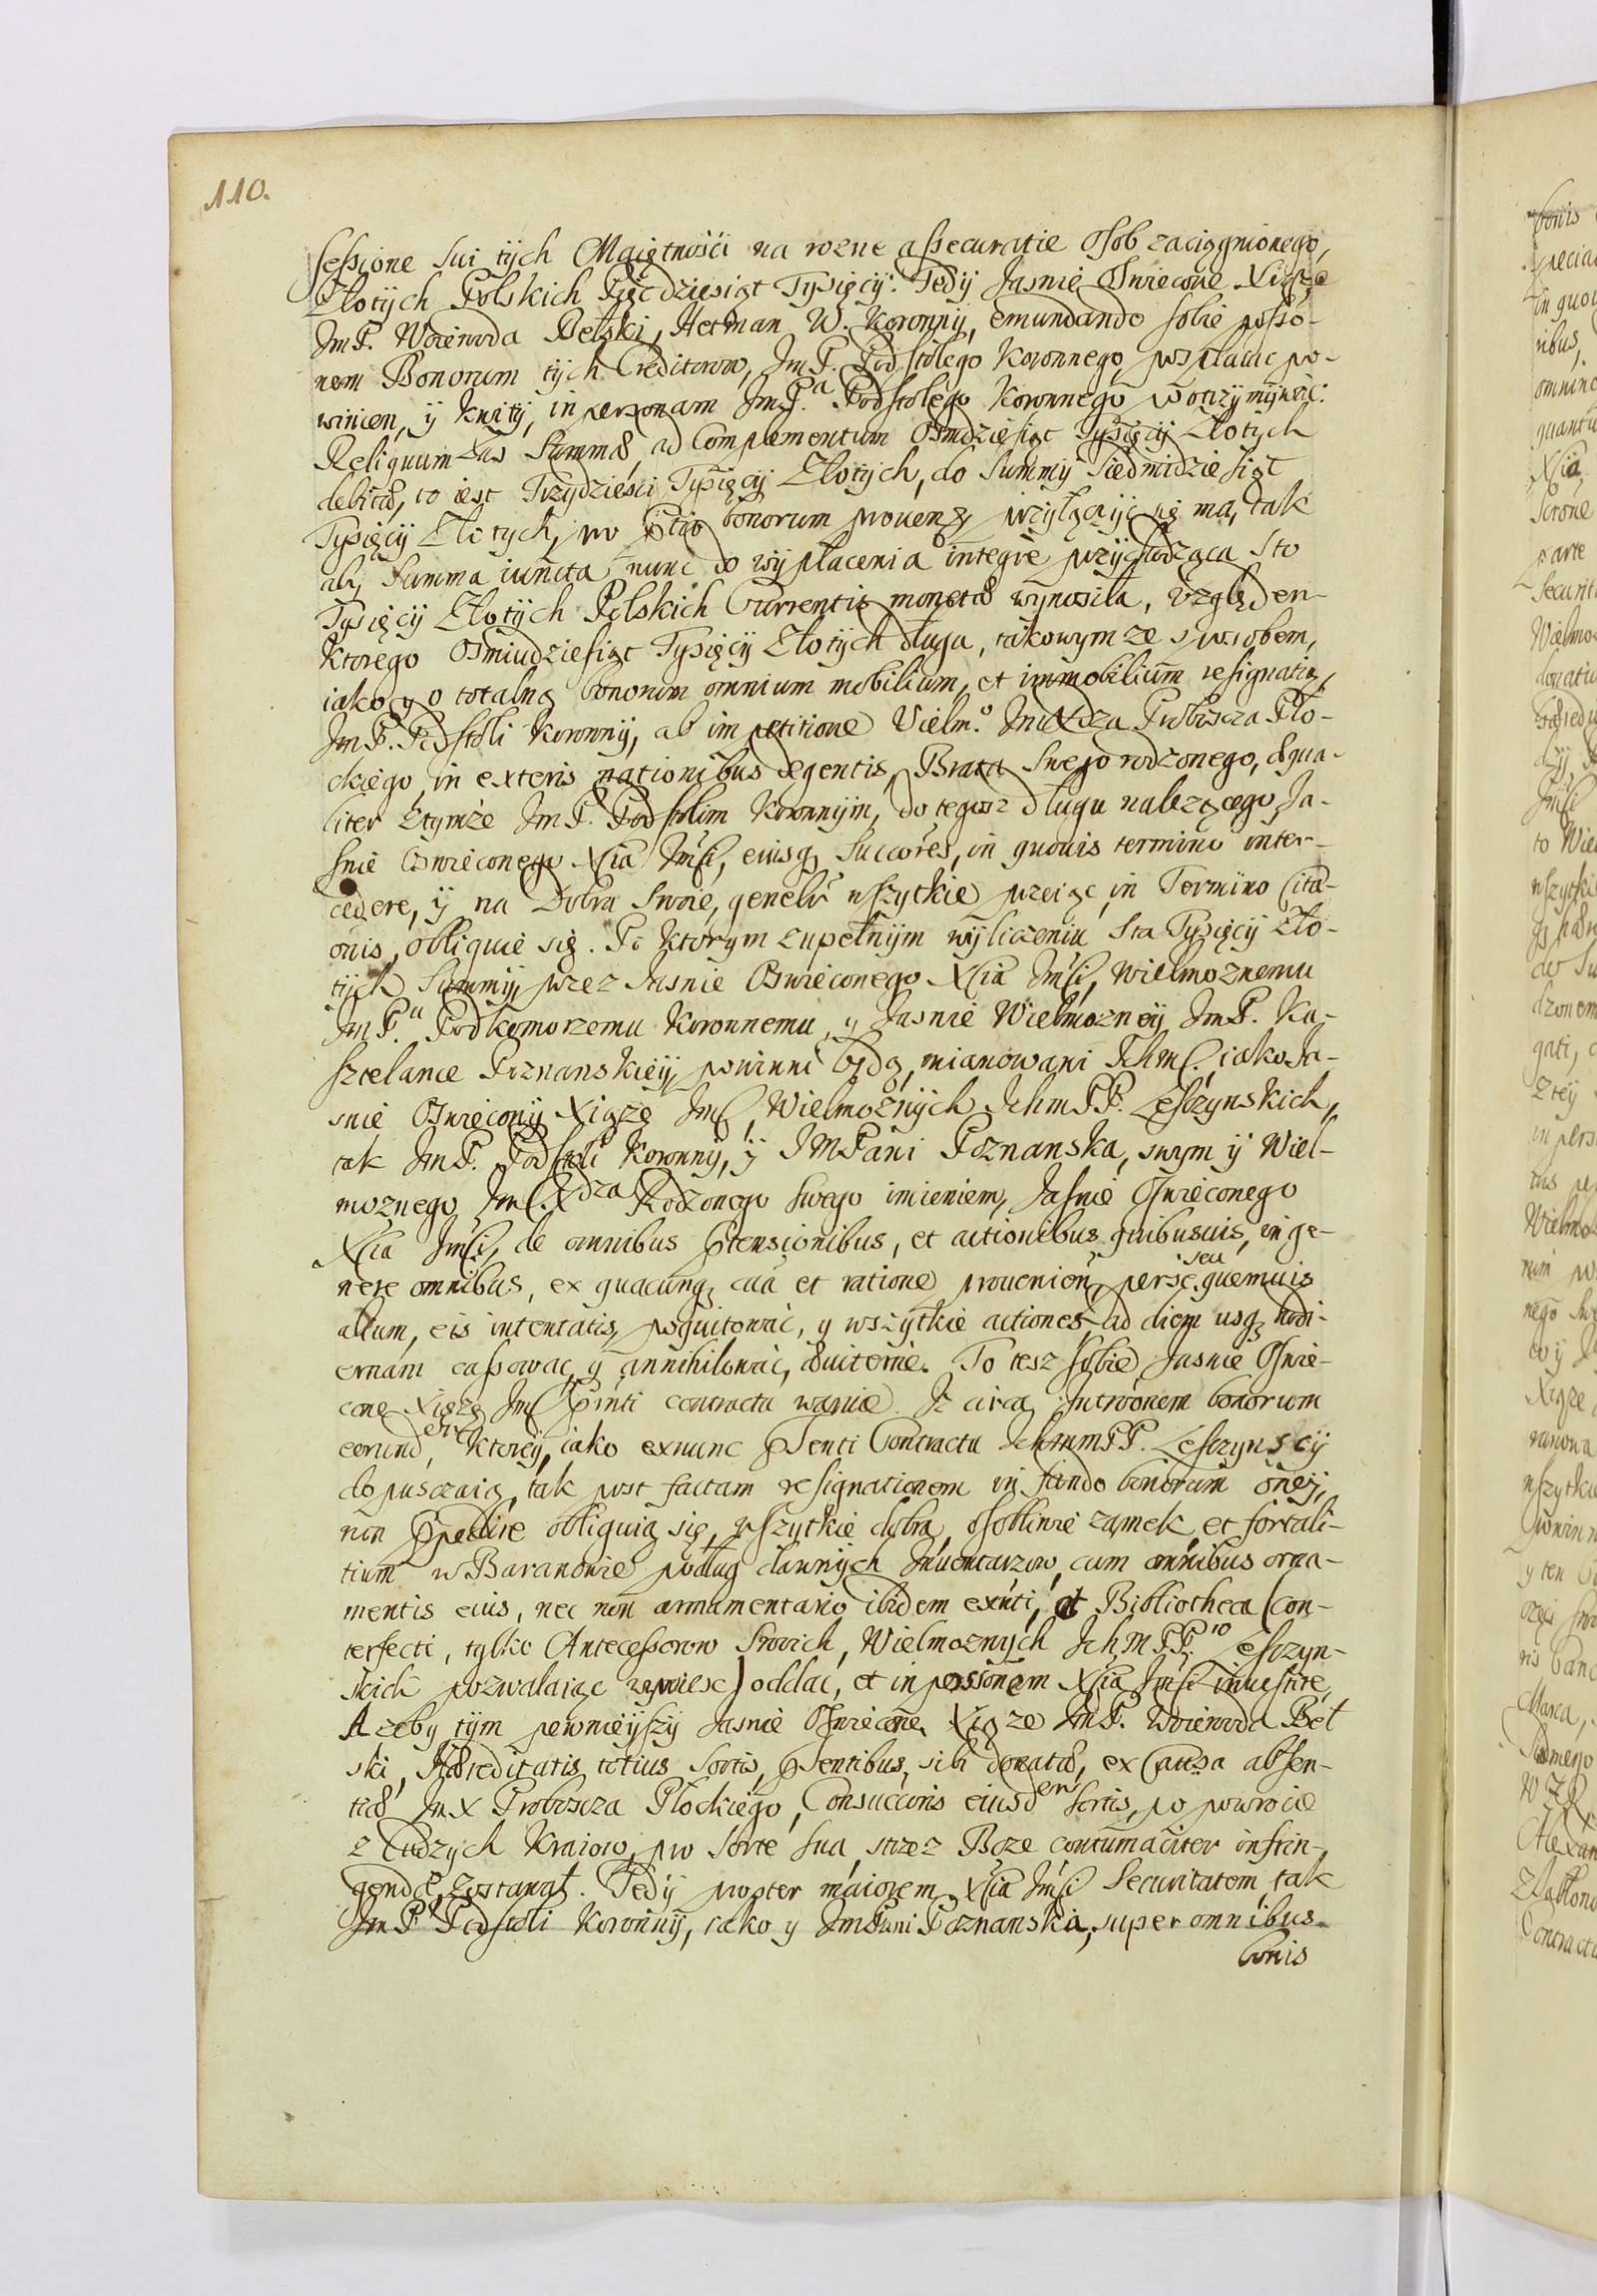 110.
sessione sui tych Maiętnośći na rozne assecuratie Osob zaciągnionego,
Złotych Polskich Pięcdziesiąt Tysięcy: Tedy Jasnie Oswiecone Xiąże
JmP. Woiewoda Bełzki, Hetman W. Koronny, emundando sobie posso-
nem Bonorum tych Creditorow, JmP. Podstolego Koronnego pospłaiac po-
winien, y kwity, in personam JmP.a Podstolego Koronnego pootrzymywać:
Reliquum zas Summæ, ad Complementum Osmdziesiąt Tysięcy Złotych
debitæ, to iest Trzydziesci Tysięcy Złotych, do Summy Siedmidziesiąt
Tysięcy Złotych, pro ptio bonorum proueng przyłączyć się ma, tak
aby Summa iuncta nunc do wypłacenia integre przychodząca Sto
Tysięcy Złotych Polskich Currentis monetæ wynosiła, Względem
ktorego Osmiudziesiąt Tysięcy Złotych długu, takowymze sposobem,
iako y o totalną bonorum omnium mobilium, et immobilium resignatią,
JmP. Podstoli Koronny, ab impetitione Wielm.o JmćXdza Proboscza Pło-
ckiego, in exteris nationibus degentis, Brata Swego rodzonego, æqua-
liter ztymże JmP. Podstolim Koronnym, do tegosz długu nalezącego, Ja-
snie Oswieconego Xcia Jmści, eiusq Succores, in quouis termino inter-
cedere, y na Dobra Swoie, genelr wszytkie przeiąc, in Termino Cita-
onis, obliguie się. Po ktorym zupełnym wyliczeniu Sta Tysięcy Zło-
tych Summy, przez Jasnie Oswieconego Xcia Jmści, Wielmoznemu
JmP.u Podkomorzemu Koronnemu, y Jasnie Wielmozney JmP. Ka-
sztelance Poznanskiey, powinni będą, mianowani Ichmć. iako Ja-
snie Oswiecony Xiąże Jmć, Wielmożnych IchmPP. Leszczynskich,
tak JmP. Podstoli Koronny, y JMPani Poznanska, swym y Wiel-
moznego Jmć.Xdza Rodzonego swego imieniem, Jasnie Oswieconego
Xcia Jmści, de omnibus ptensionibus, et actionibus quibusuis, in ge-
nere omnibus, ex quacunq cáá et ratione prouenien, per se seu quemuis
alium, eis intentatis, poquitować, y wszytkie actiones ad diem usq hodi-
ernam cassowac, y annihilować, æuiternie. To tesz sobie Jasnie Oswie-
cone Xiąże Jmć pnti contractu waruie. Iż circa Introonem bonorum
eorund,em ktorey, iako exnunc psenti Contractu IchmmPP. Leszczynscy
dopusczaią, tak post factam resignationem in fundo bonorum oney,
non Ppedire obliguią się, wszytkie dobra, osobliwie zamek, et fortali-
tium w Baranowie podług dawnych Inuentarzow, cum omnibus orna-
mentis eius, nec non armamentario ibidem exnti, et Bibliotheca (Con-
terfecti, tylko Antecessorow Swoich, Wielmoznych IchMPP.ow Leszczyn-
skich pozwalaiąc wywiesc) oddać, et in possionem Xcia Jmści inuestire,
Azeby tym pewnieyszy Jasnie Oswiecone Xiąże JmP. Woiewoda Beł
ski, Hæreditatis totius Sortis, psentibus, sibi donatæ, ex Causa absen-
tiæ JmX Proboscza Płockiego, Consuccoris eiusdem Sortis, po powrocie
z Cudzych Kraiow, pro Sorte sua, strzez Boze contumaciter infrin-
gendæ, zostawał. Tedy propter maiorem Xcia Jmści Securitatem, tak
JmP. Podstoli Koronny, iako y JmPani Poznanska, super omnibus
bonis